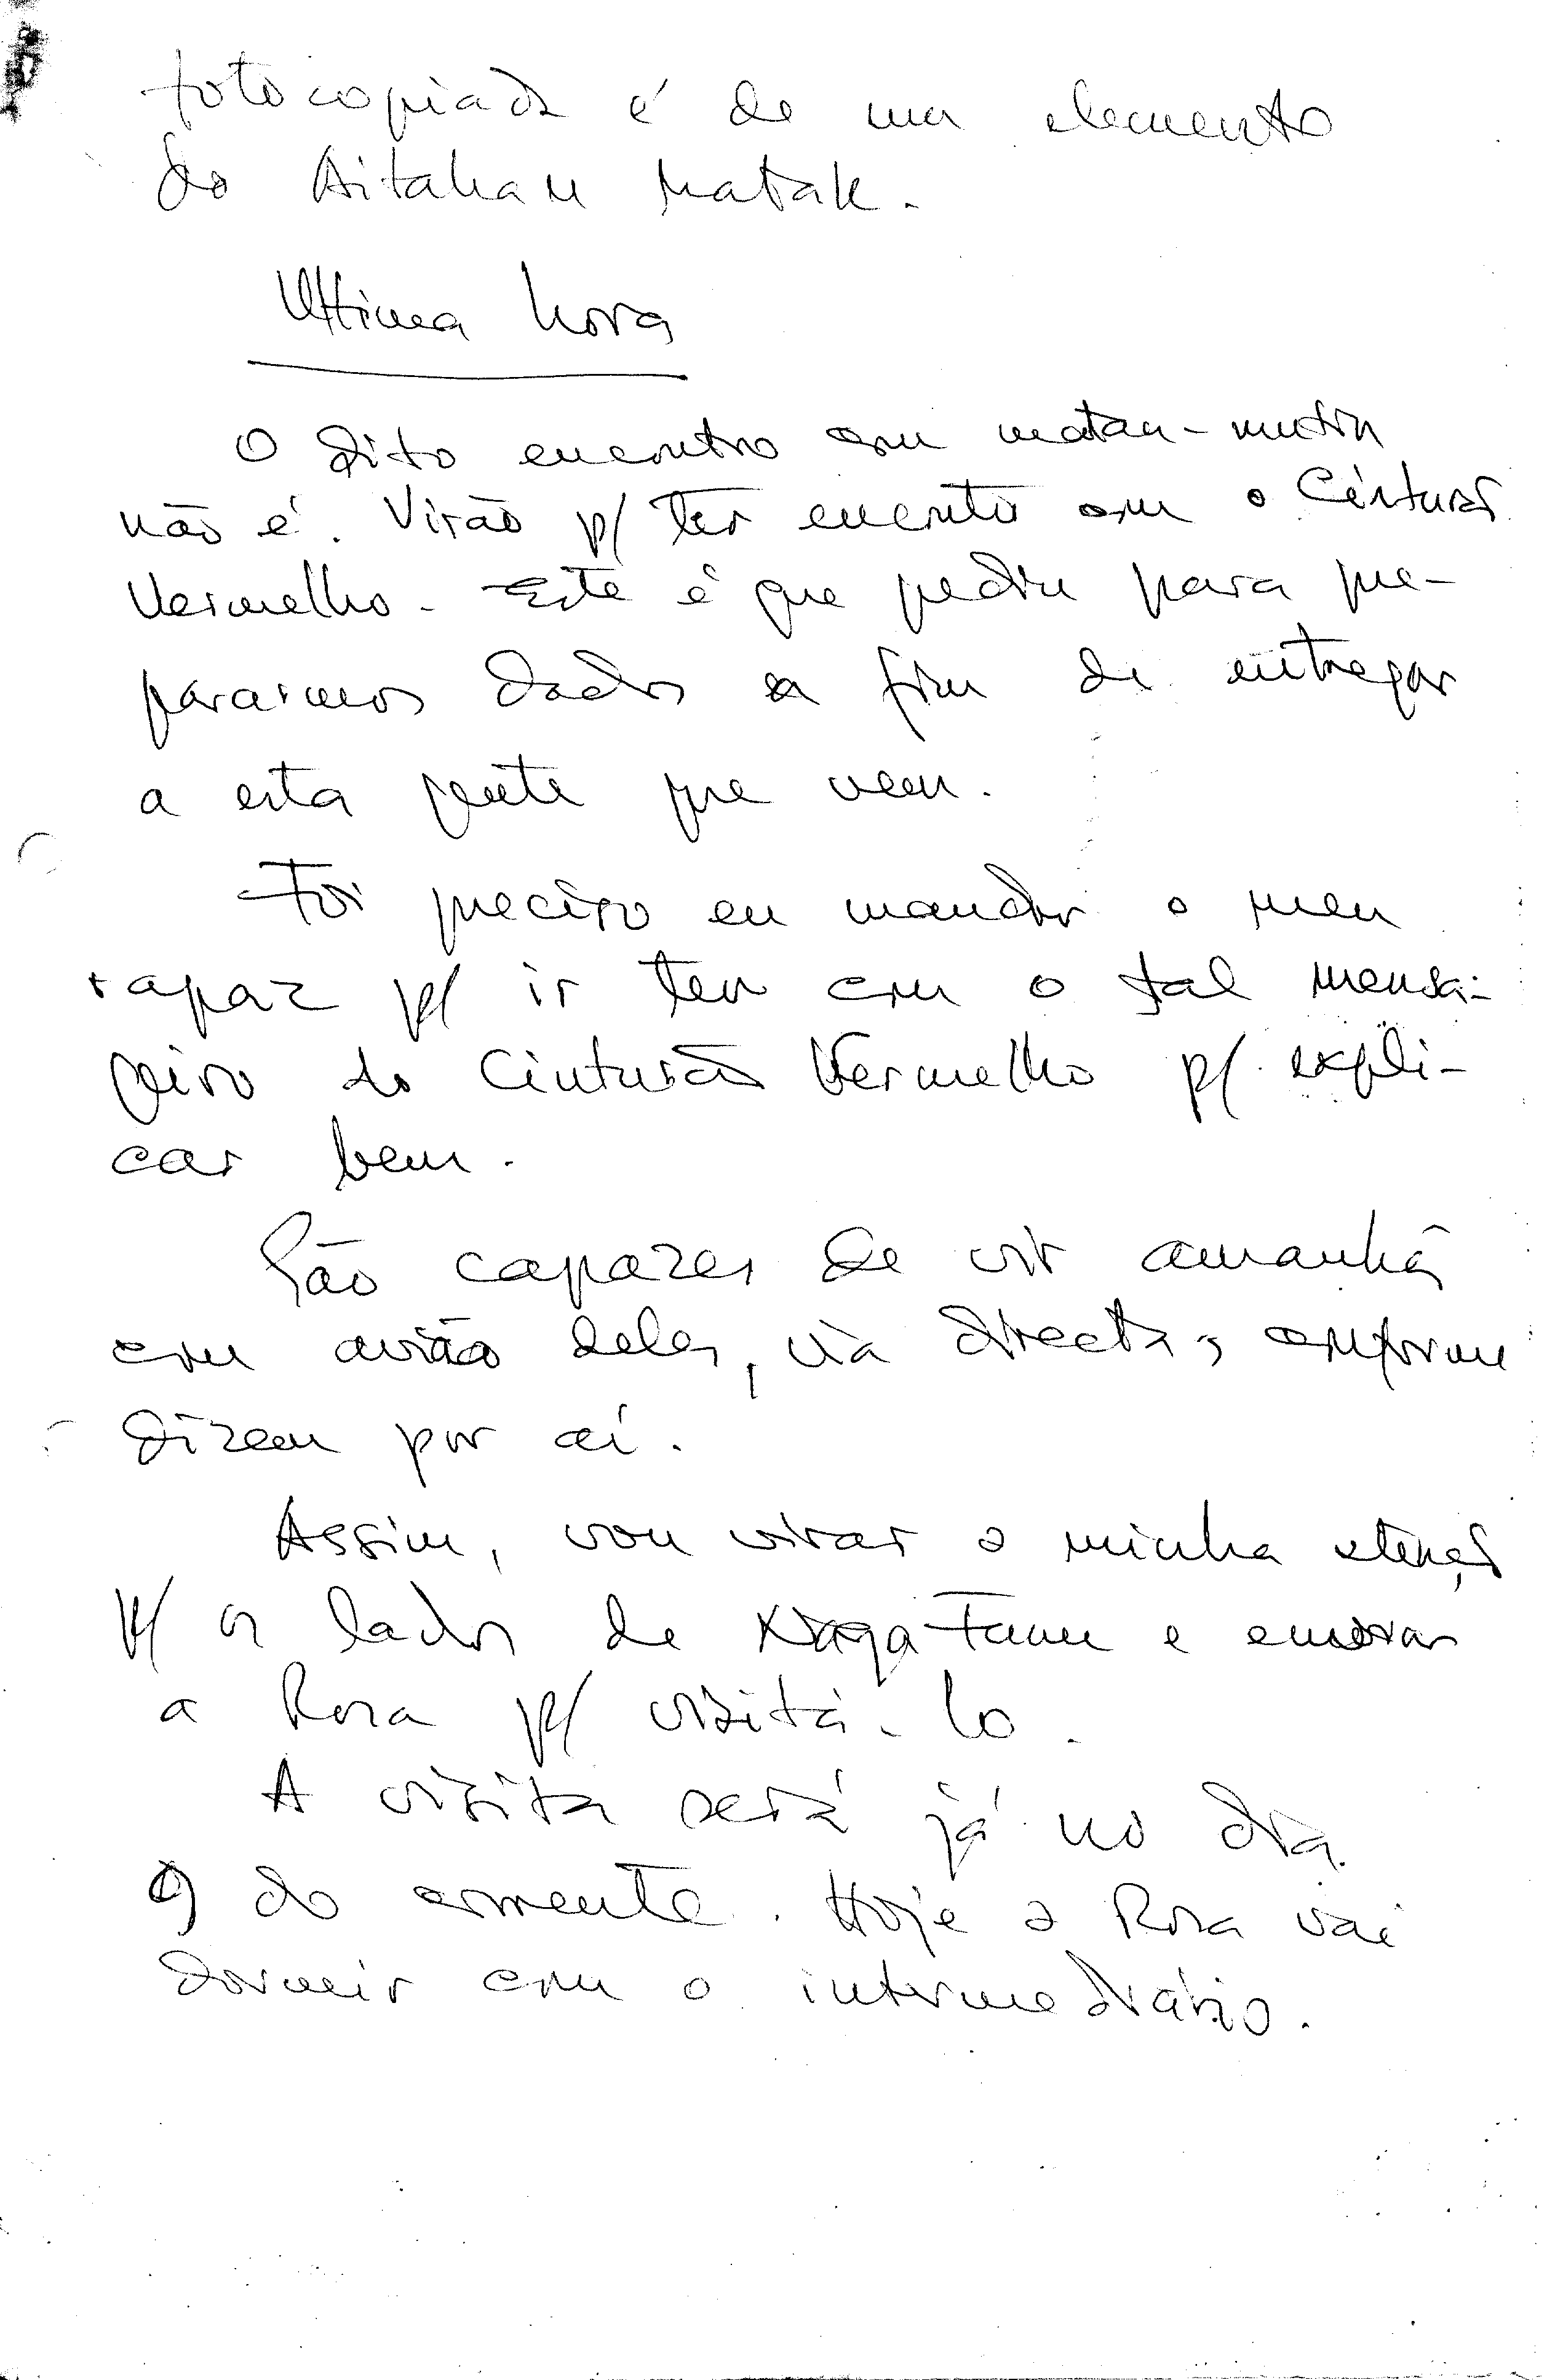 fotocopiada é de um elemento
do Aitahan Matak.
Ultima hora
O dito encontro com matan-mutin
não é. Virão p/ ter encontro com o Cinturão
Vermelho. Este é que pediu para pre-
pararmos dados a fim de entregar
a esta gente que vem.
Foi preciso eu mandar o meu
rapaz p/ ir ter com o tal mensa-
geiro do Cinturão Vermelho p/ expli-
car bem.
São capazes de vir amanhã
com avião deles, via directa, conforme
dizem por aí.
Assim, vou virar a minha atenção
p/ os lados de e enviar
a Rosa p/ visitá-lo.
A visita será já no dia
9 do corrente. Hoje a Rosa vai
dormir com o intermediário.